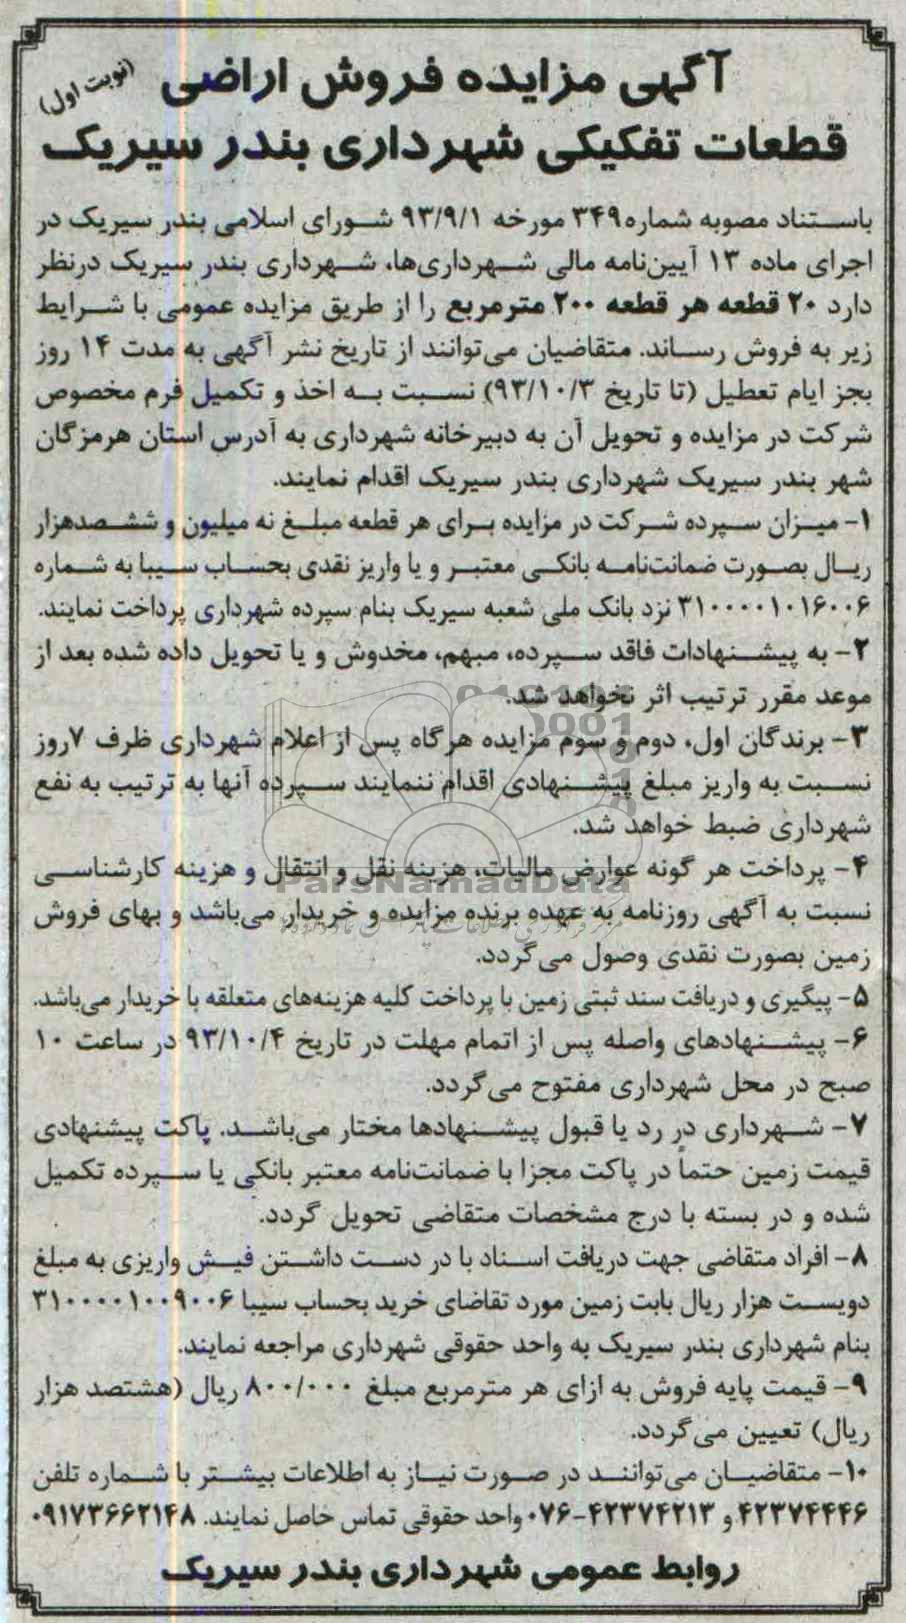 آگهی مزایده فروش اراضی (نوبت اول)
قطعات تفکیکی شهرداری بندر سیریک
باستناد مصوبه شماره۳۴۹ مورخه ۹۳/۹/۱ شورای اسلامی بندر سیریک در
اجرای ماده ۱۳ آیین‌نامه مالی شهرداری‌ها، شهرداری بندر سیریک درنظر
دارد ۲۰ قطعه هر قطعه ۲۰۰ مترمربع را از طریق مزایده عمومی با شرایط
زیر به فروش رساند. متقاضیان می‌توانند از تاریخ نشر آگهی به مدت ۱۴ روز
بجز ایام تعطیل (تا تاریخ ۹۳/۱۰/۳) نسبت به اخذ و تکمیل فرم مخصوص
شرکت در مزایده و تحویل آن به دبیرخانه شهرداری به آدرس استان هرمزگان
شهر بندر سیریک شهرداری بندر سیریک اقدام نمایند.
۱- میزان سپرده شرکت در مزایده برای هر قطعه مبلغ نه میلیون و ششصدهزار
ریال بصورت ضمانت‌نامه بانکی معتبر و یا واریز نقدی بحساب سیبا به شماره
۳۱۰۰۰۰۱۰۱۶۰۰۶ نزد بانک ملی شعبه سیریک بنام سپرده شهرداری پرداخت نمایند.
۲- به پیشنهادات فاقد سپرده، مبهم، مخدوش و یا تحویل داده شده بعد از
موعد مقرر ترتیب اثر نخواهد شد.
۳- برندگان اول، دوم و سوم مزایده هرگاه پس از اعلام شهرداری ظرف ۷روز
نسبت به واریز مبلغ پیشنهادی اقدام ننمایند سپرده آنها به ترتیب به نفع
شهرداری ضبط خواهد شد.
۴- پرداخت هر گونه عوارض مالیات، هزینه نقل و انتقال و هزینه کارشناسی
ParsNamadData
نسبت به آگهی روزنامه به عهده برنده مزایده و خریدار می‌باشد و بهای فروش
زمین بصورت نقدی وصول می‌گردد.
۵- پیگیری و دریافت سند ثبتی زمین با پرداخت کلیه هزینه‌های متعلقه با خریدار می‌باشد.
۶- پیشنهادهای واصله پس از اتمام مهلت در تاریخ ۹۳/۱۰/۴ در ساعت ۱۰
صبح در محل شهرداری مفتوح می‌گردد.
۷- شهرداری در رد یا قبول پیشنهادها مختار می‌باشد. پاکت پیشنهادی
قیمت زمین حتماً در پاکت مجزا با ضمانت‌نامه معتبر بانکی یا سپرده تکمیل
شده و در بسته با درج مشخصات متقاضی تحویل گردد.
۸- افراد متقاضی جهت دریافت اسناد با در دست داشتن فیش واریزی به مبلغ
دویست هزار ریال بابت زمین مورد تقاضای خرید بحساب سیبا ۳۱۰۰۰۰۱۰۰۹۰۰۶
بنام شهرداری بندر سیریک به واحد حقوقی شهرداری مراجعه نمایند.
۹- قیمت پایه فروش به ازای هر مترمربع مبلغ ۸۰۰/۰۰۰ ریال (هشتصد هزار
ریال) تعیین می‌گردد.
۱۰- متقاضیان می‌توانند در صورت نیاز به اطلاعات بیشتر با شماره تلفن
۴۲۳۷۴۴۴۶ و ۴۲۳۷۴۲۱۳-۰۷۶ واحد حقوقی تماس حاصل نمایند. ۰۹۱۷۳۶۶۲۱۴۸
روابط عمومی شهرداری بندر سیریک